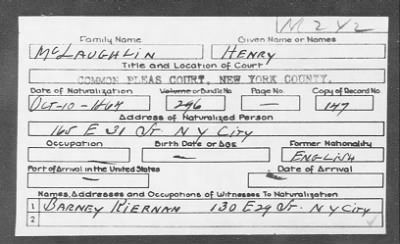 M242
Family Name Given Name or Names
McLAUGHLIN HENRY
Title and Location of Court
COMMON PLEAS COURT, NEW YORK COUNTY.
Date of Naturalization Volume or Bundle No. Page No. Copy of Record No.
OCT-10- 296 — 147
Address of Naturalized Person
165 E 31 St. N Y CITY
Occupation Birth Date or Age Former Nationality
— — ENGLISH
Port of Arrival in the United States Date of Arrival
— —
Names, Addresses and Occupations of Witnesses To Naturalization
1 BARNEY KIERNAN 130 E 29 St. N Y CITY
2